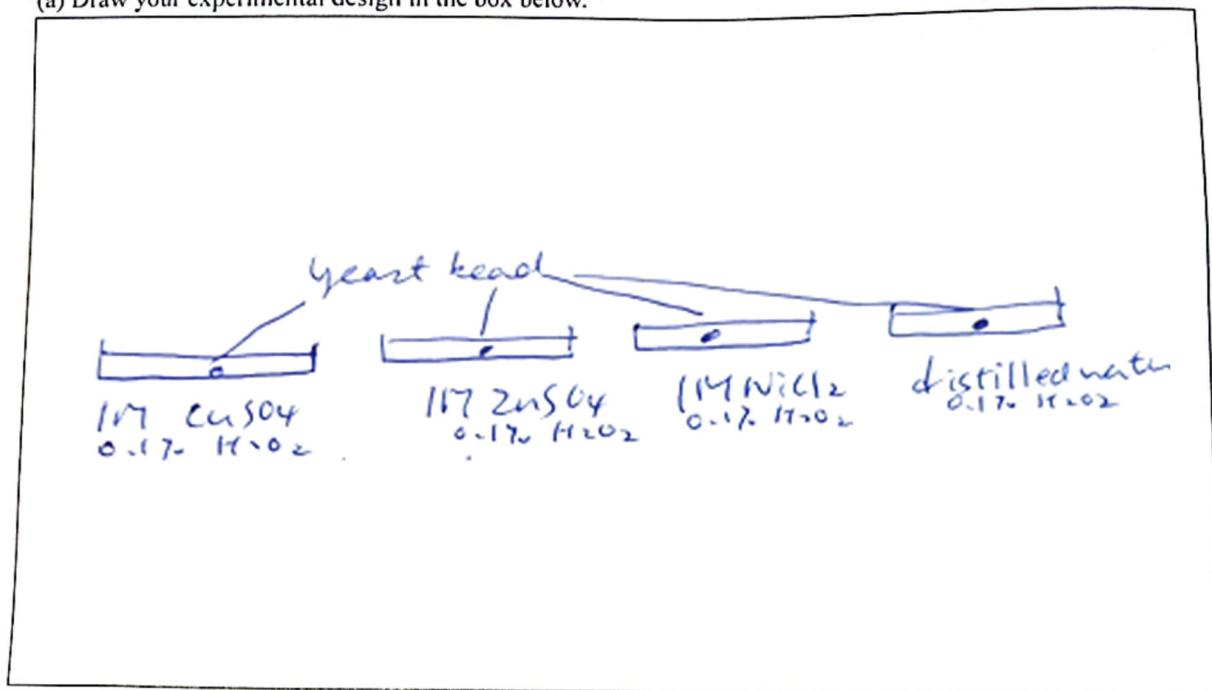 (a) Draw your experimental design in the box below.
yeast bead
1M CuSO4
0.1% H2O2
1M ZnSO4
0.1% H2O2
1M NiCl2
0.1% H2O2
distilled water
0.1% H2O2